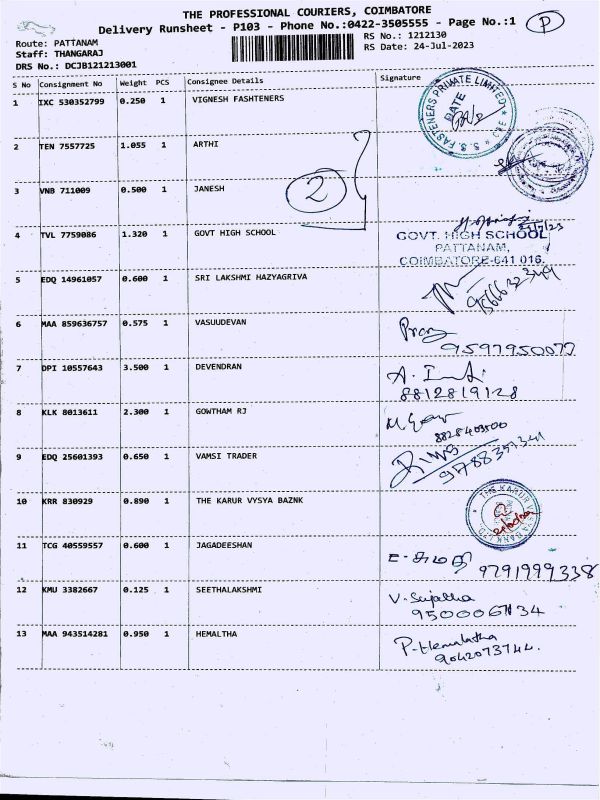 THE PROFESSIONAL COURIERS, COIMBATORE
Delivery Runsheet - P103 - Phone No.:0422-3505555 - Page No.:1 P
Route: PATTANAM RS No.: 1212130
Staff: THANGARAJ RS Date: 24-Jul-2023
DRS No.: DCJB121213001
S No Consignment No Weight PCS Consignee Details Signature
1 IXC 530352799 0.250 1 VIGNESH FASHTENERS
S. S. FASTENERS PRIVATE LIMITED * CBE *
DATE
2 TEN 7557725 1.055 1 ARTHI
3 VNB 711009 0.500 1 JANESH
2
4 TVL 7759086 1.320 1 GOVT HIGH SCHOOL
GOVT. HIGH SCHOOL
PATTANAM,
COIMBATORE-641 016.
5 EDQ 14961057 0.600 1 SRI LAKSHMI HAZYAGRIVA
6 MAA 859636757 0.575 1 VASUUDEVAN
9597950077
7 DPI 10557643 3.500 1 DEVENDRAN
8812819128
8 KLK 8013611 2.300 1 GOWTHAM RJ
9 EDQ 25601393 0.650 1 VAMSI TRADER
9788351341
10 KRR 830929 0.890 1 THE KARUR VYSYA BAZNK
THE KARUR VYSYA BANK LTD.
11 TCG 40559557 0.600 1 JAGADEESHAN
9791999338
12 KMU 3382667 0.125 1 SEETHALAKSHMI
V. Sujatha
13 MAA 943514281 0.950 1 HEMALTHA
P. Hemalatha
9042073744.